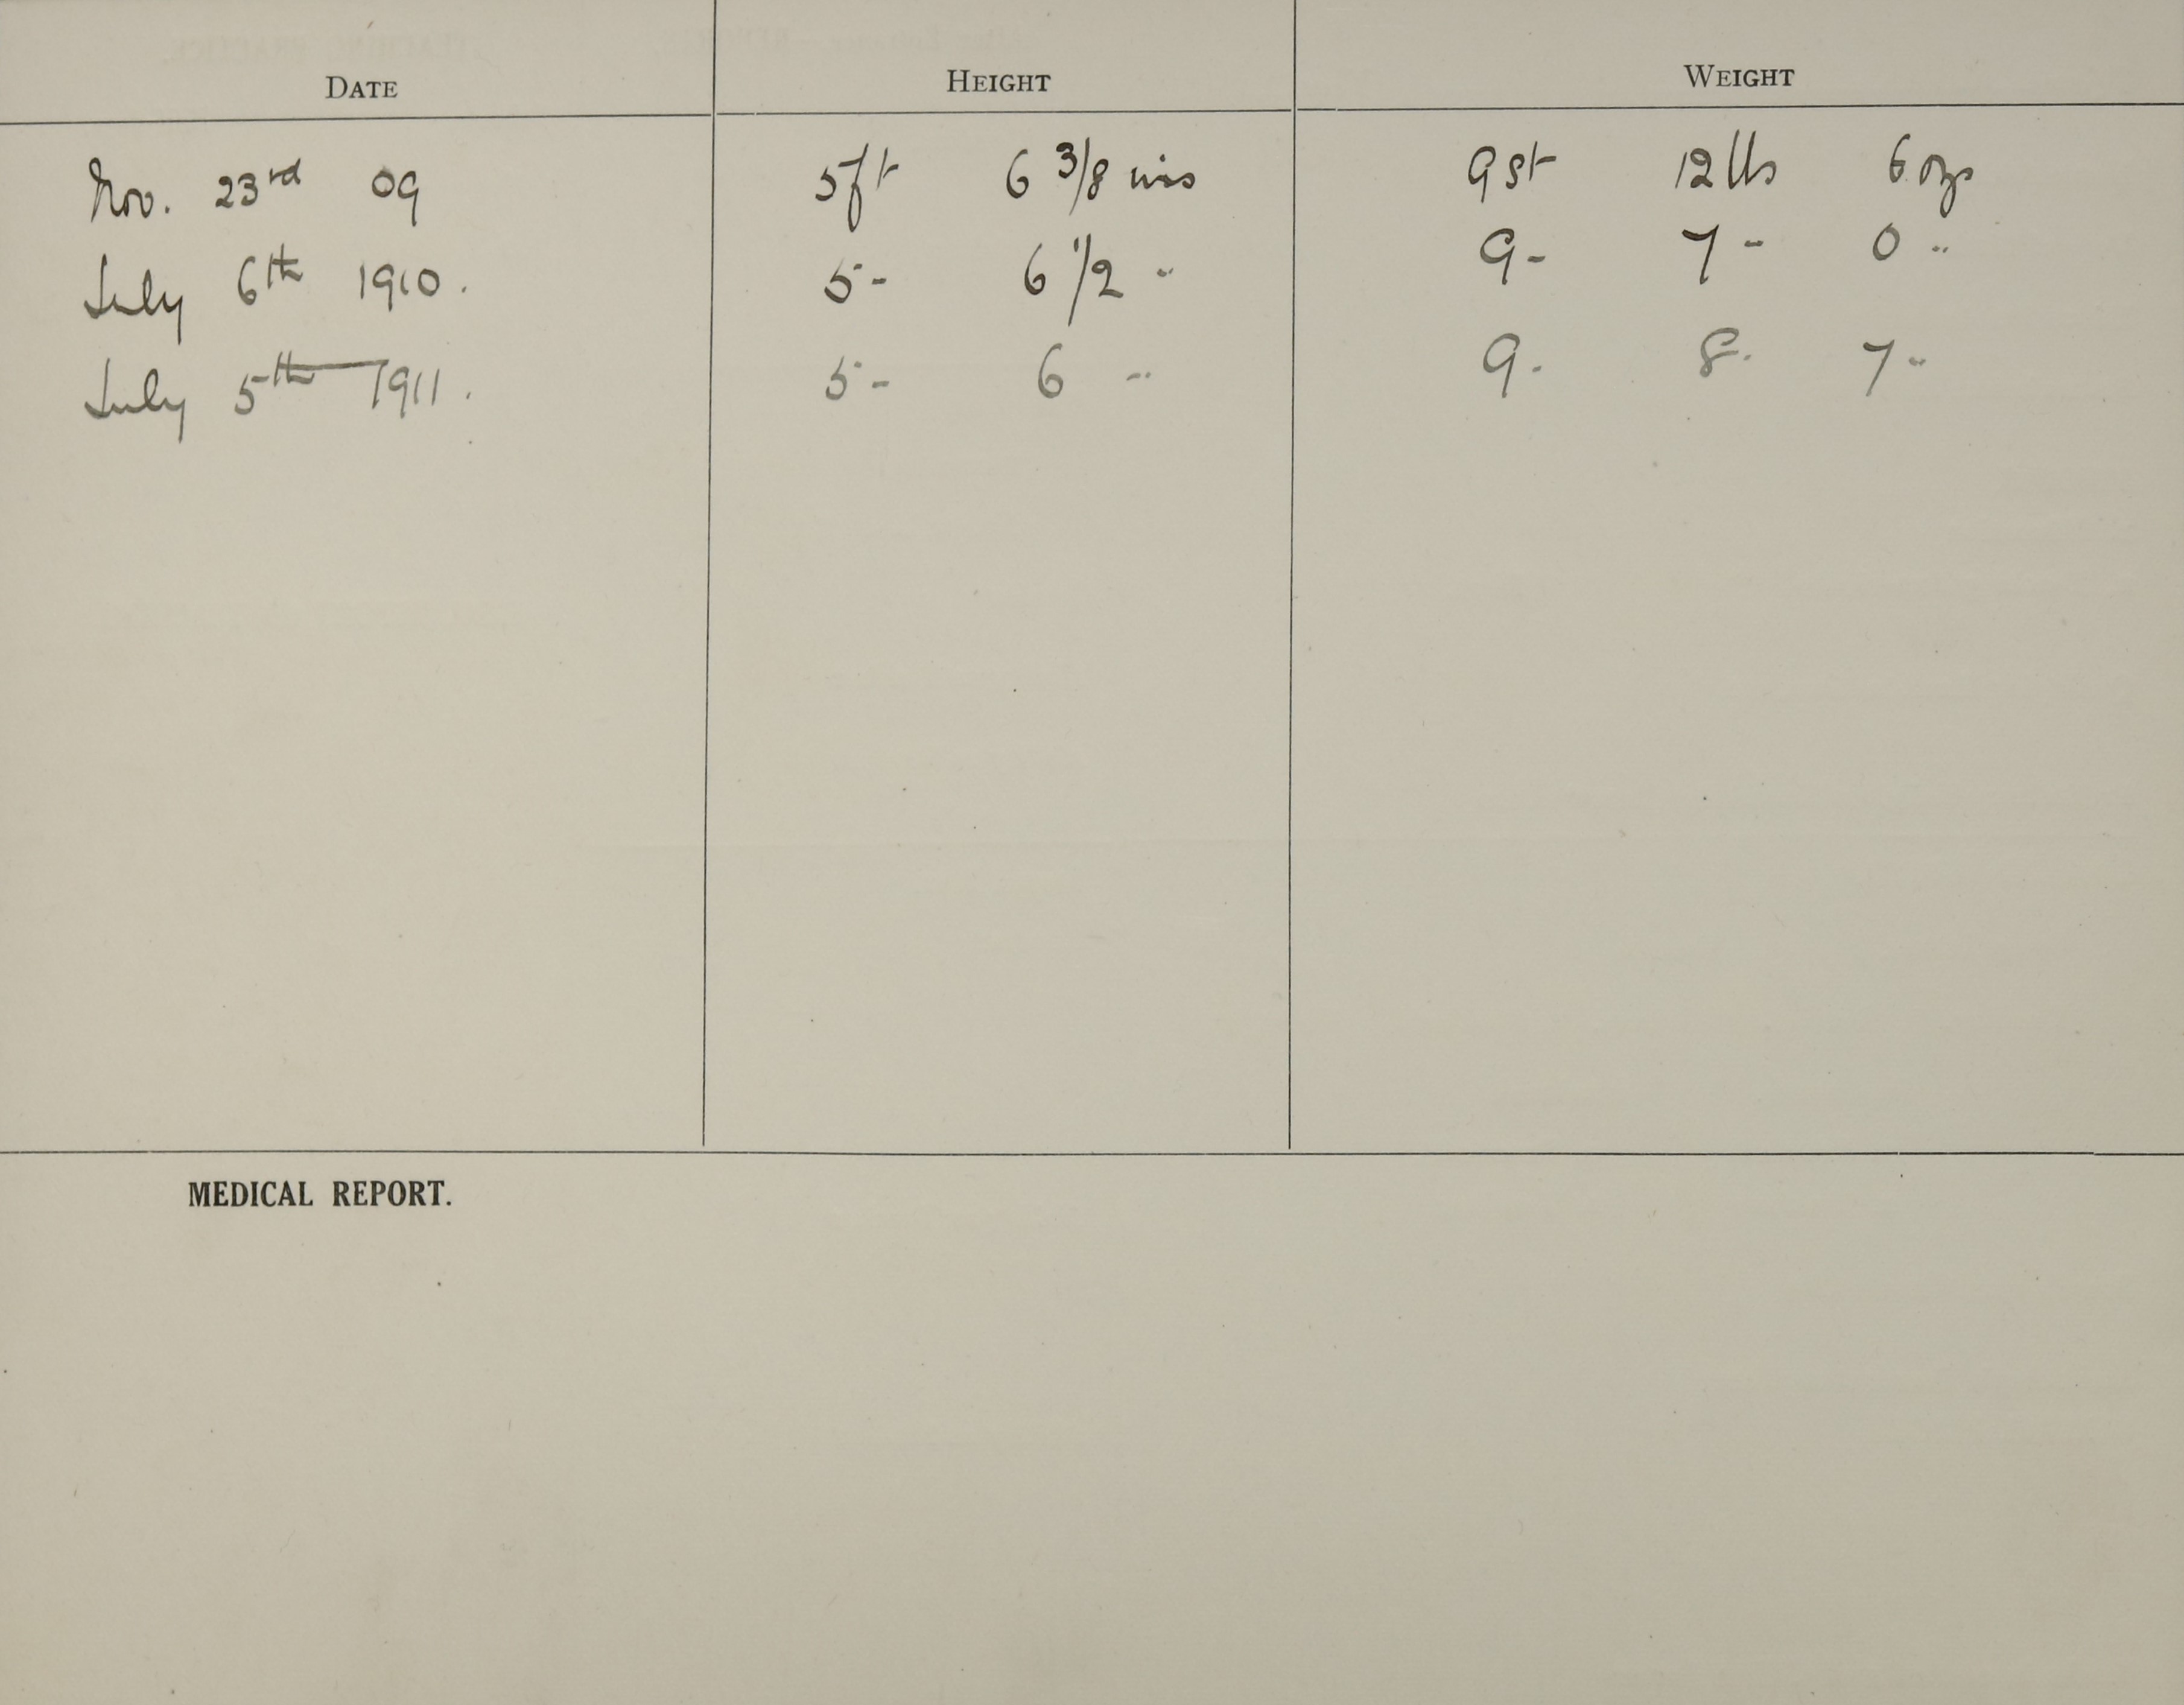 DATE HEIGHT WEIGHT
Nov. 23rd 09 5ft 6 3/8 ins 9st 12 lbs 6 ozs
July 6th 1910. 5- 6 1/2 " 9- 7- 0 "
July 5th 1911. 5- 6 " 9. 8. 7 "
MEDICAL REPORT.